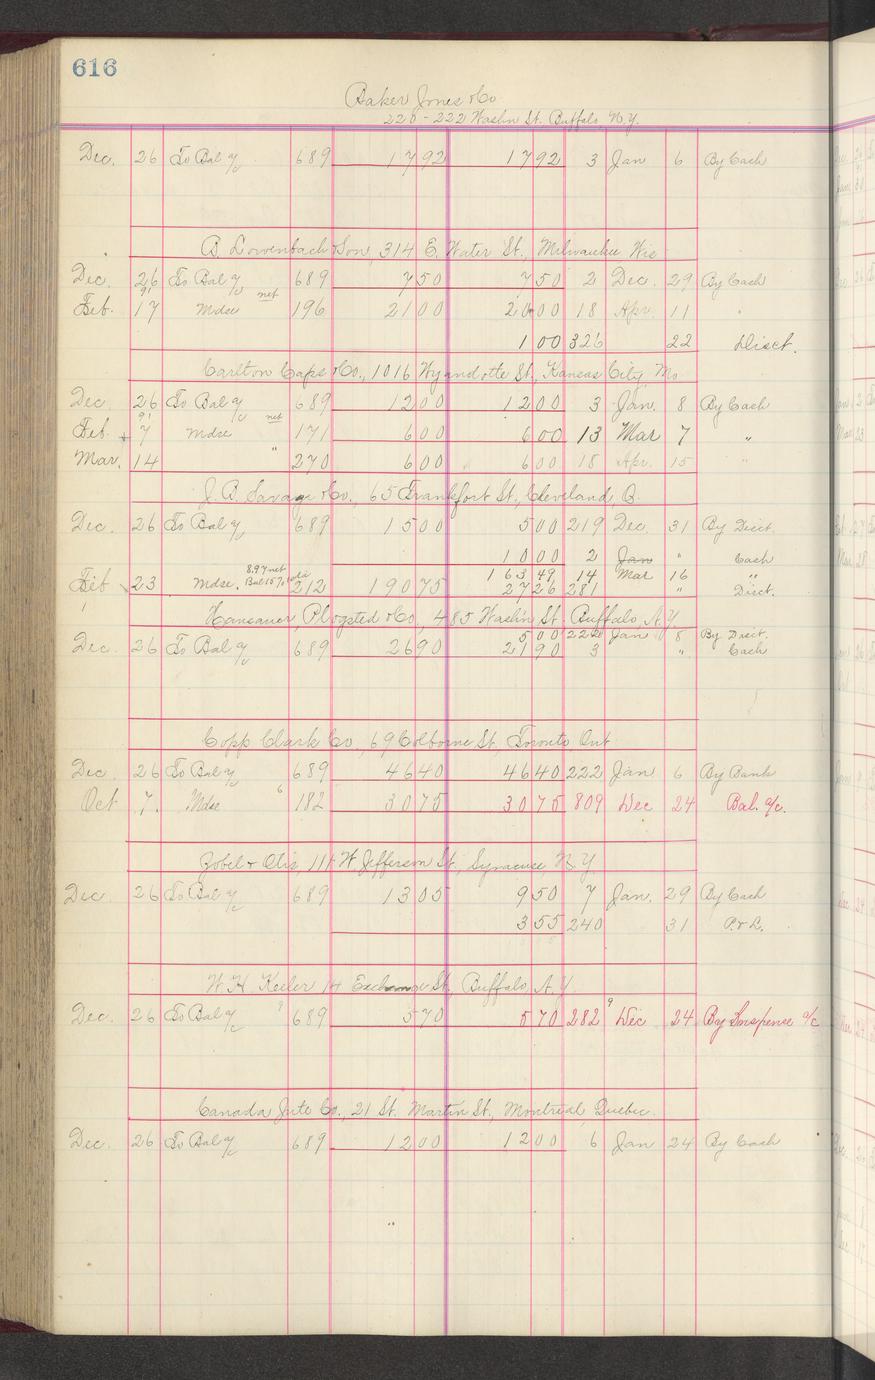 616
Baker Jones & Co
220-222 Washn St. Buffalo, N.Y.
Dec. 26 To Bal a/c 689 17 92 17 92 3 Jan 6 By Cash
B. Lowenbach & Son, 314 E. Water St., Milwaukee Wis
Dec. 26 To Bal a/c 689 7 50 7 50 2 Dec. 29 By Cash
91
Feb. 17 Mdse net 196 21 00 20 00 18 Apr. 11 "
1 00 326 22 Disct.
Carlton Caps & Co., 1016 Wyandotte St., Kansas City, Mo
Dec 26 To Bal a/c 689 12 00 12 00 3 Jan. 8 By Cash
91
Feb. 7 Mdse net 171 6 00 6 00 13 Mar 7 "
Mar. 14 " 270 6 00 6 00 18 Apr. 15 "
J. B. Savage & Co., 65 Frankfort St., Cleveland, O.
Dec 26 To Bal a/c 689 15 00 5 00 219 Dec. 31 By Disct.
10 00 2 Jan " Cash
Feb 23 Mdse. 8.97 net Bal 15% 212 190 75 163 49 14 Mar 16 "
27 26 281 " Disct.
Hausauer, Plogsted & Co, 485 Washn St. Buffalo, N.Y.
5 00 222 Jan 8 By Disct.
Dec. 26 To Bal a/c 689 26 90 21 90 3 " Cash
Copp Clark Co., 69 Colborne St., Toronto Ont
Dec 26 To Bal a/c 689 46 40 46 40 222 Jan 6 By Bank
Oct 7. Mdse 6 182 30 75 30 75 809 Dec 24 Bal. a/c.
Zobel & Olis, 111 W. Jefferson St., Syracuse N.Y.
Dec 26 To Bal a/c 689 13 05 9 50 7 Jan. 29 By Cash
3 55 240 31 P. & L.
W. H. Keeler 14 Exchange St., Buffalo, N.Y.
Dec. 26 To Bal a/c 9 689 5 70 5 70 282 9 Dec 24 By Suspense a/c
Canada Jute Co., 21 St. Martin St., Montreal, Quebec.
Dec. 26 To Bal a/c 689 12 00 12 00 6 Jan 24 By Cash